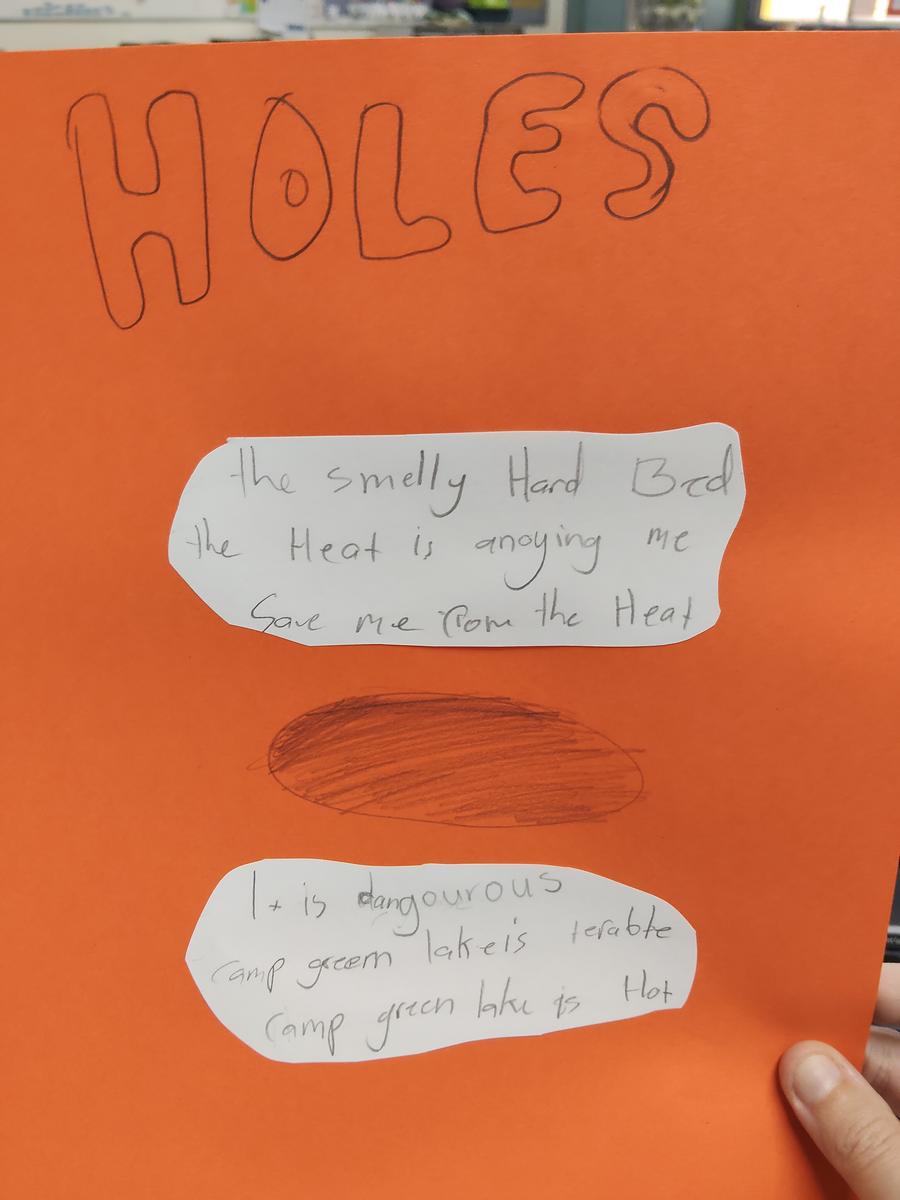 HOLES
the smelly Hard Bed
the Heat is anoying me
Save me from the Heat
It is dangourous
camp green lake is terable
camp green lake is Hot